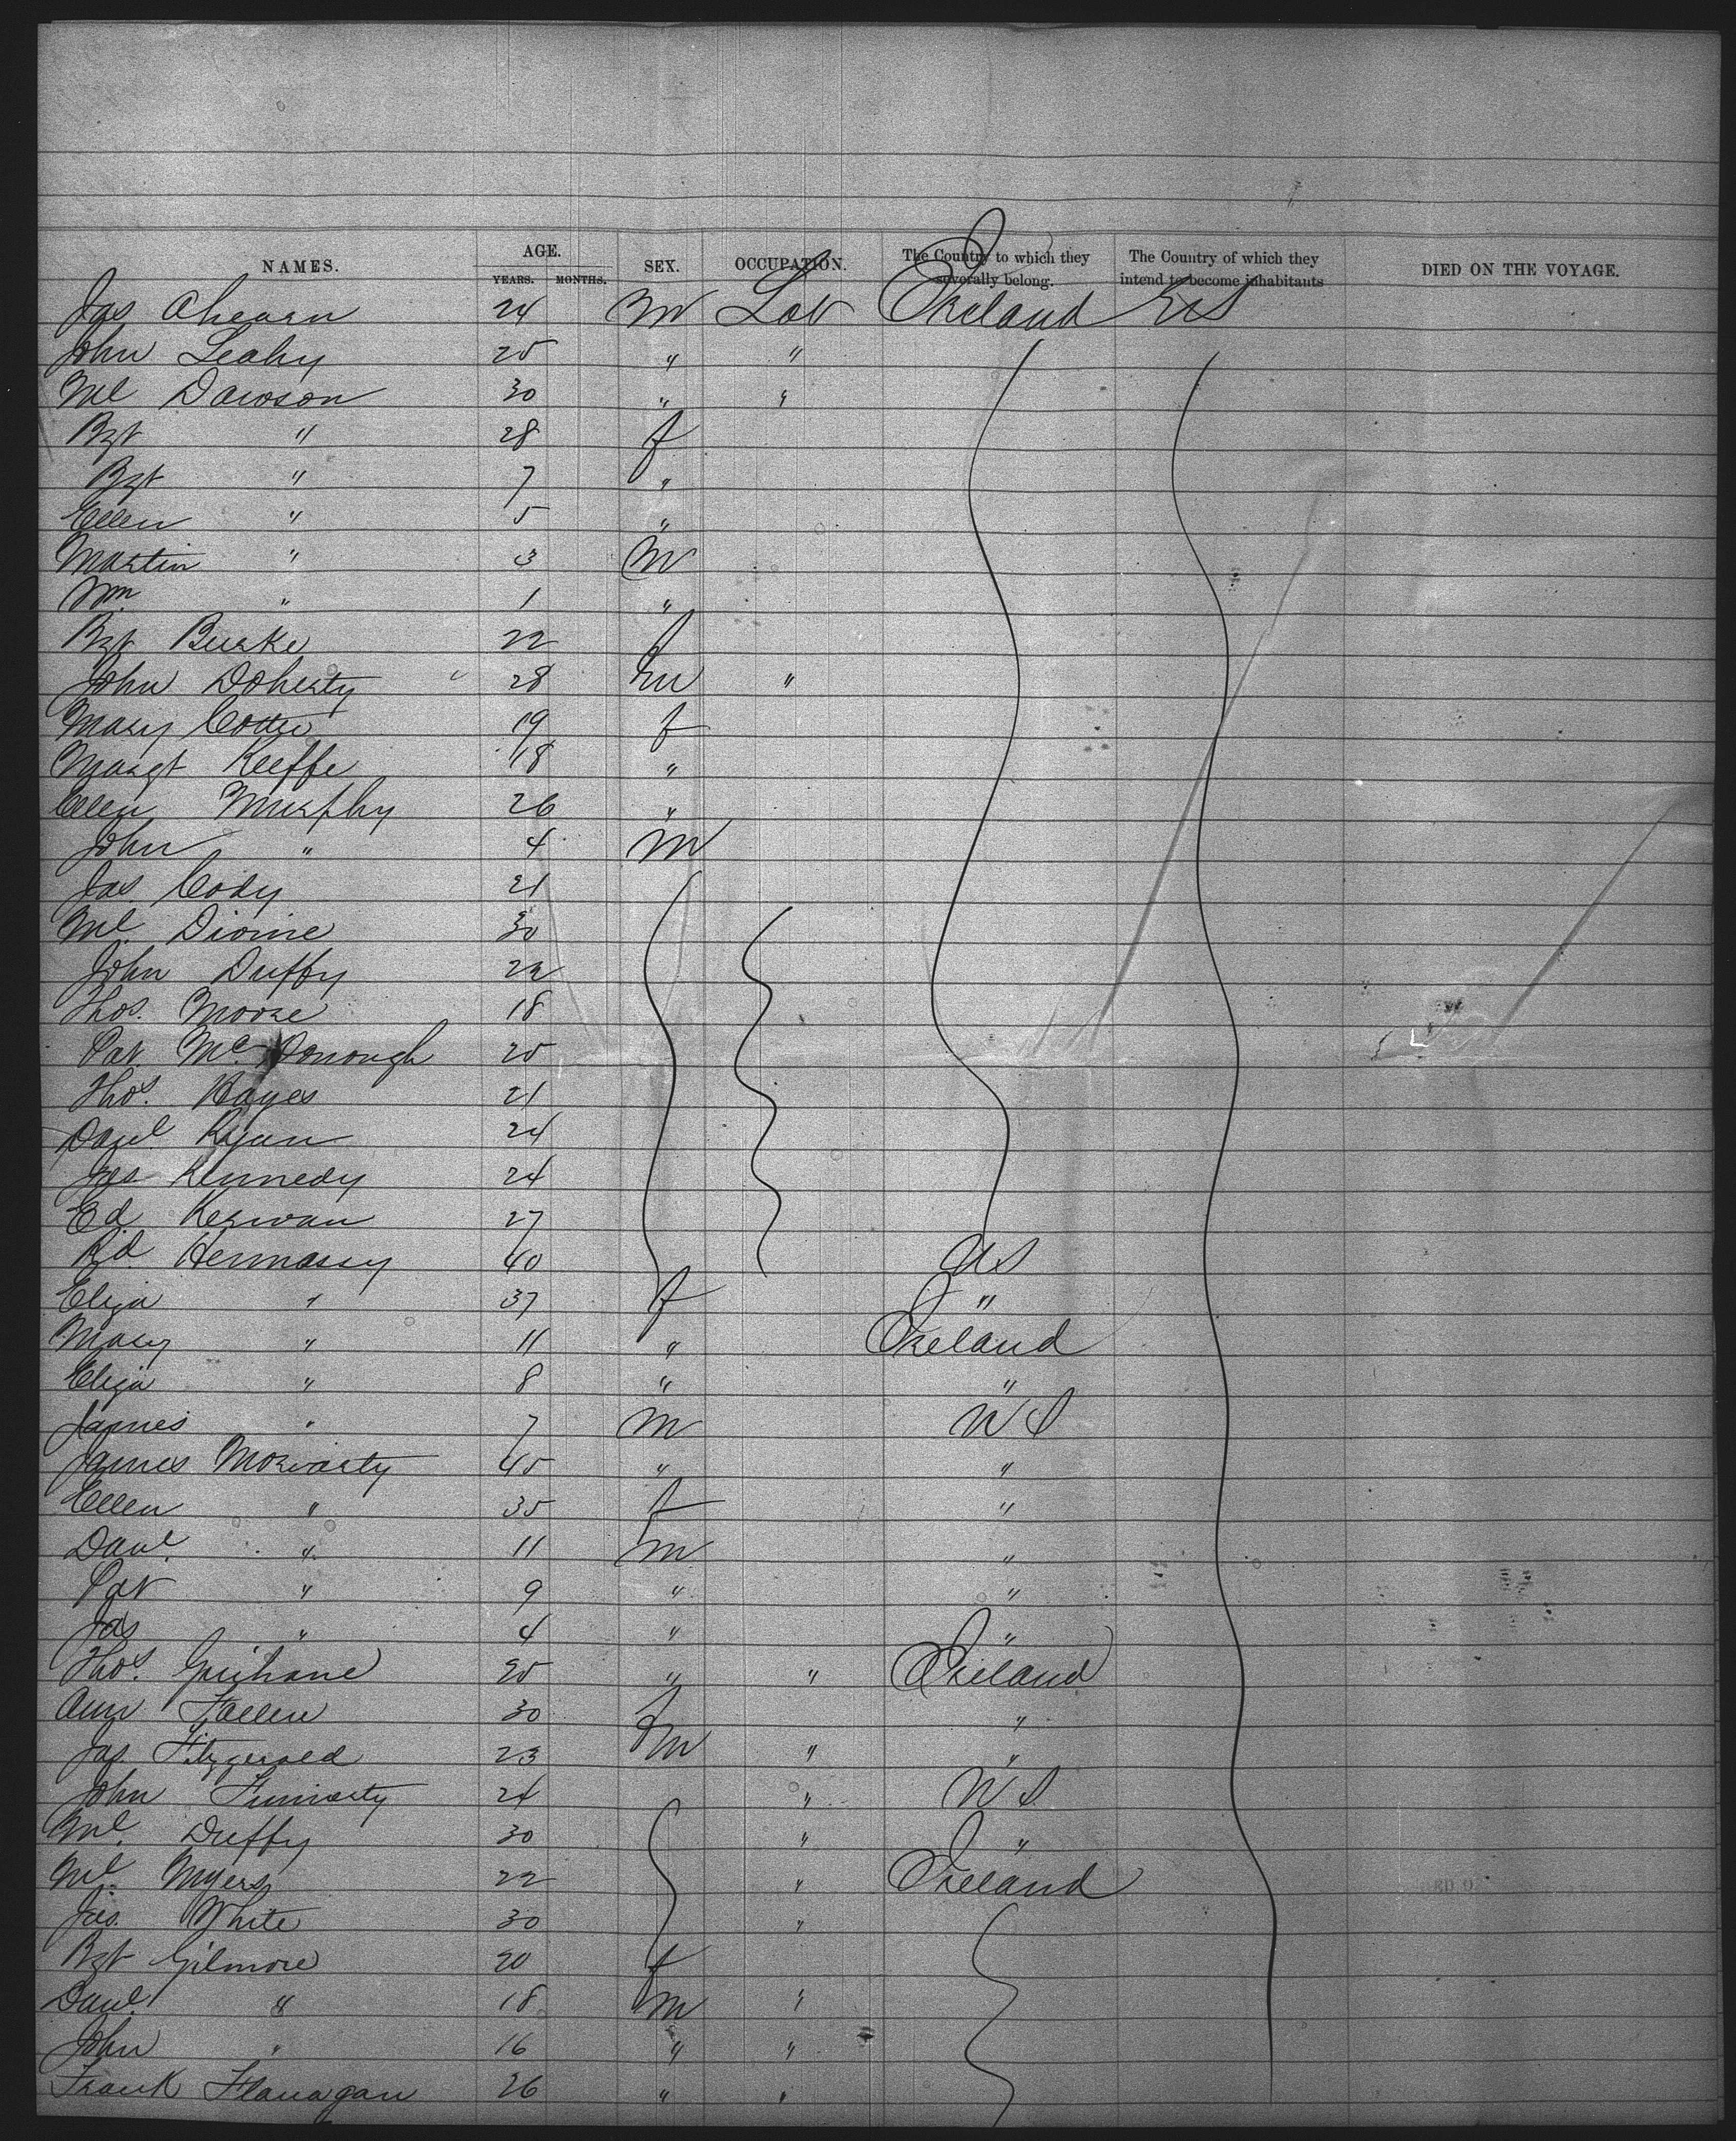 NAMES. AGE. YEARS. MONTHS. SEX. OCCUPATION. The Country to which they severally belong. The Country of which they intend to become inhabitants DIED ON THE VOYAGE.
Jas Ahearn 24 M Lab Ireland US
John Leahy 25 " "
Ml Dawson 30 " "
Bgt " 28 f
Bgt " 7 "
Ellen " 5 "
Martin " 3 M
Wm " 1 "
Bgt Burke 22 f
John Doherty 28 m "
Mary Cotter 19 f
Margt Keeffe 18 "
Ellen Murphy 26 "
John " 4 M
Jas. Cody 21
Ml. Divine 30
John Duffy 22
Thos. Moore 18
Pat McDonough 25
Thos. Hayes 21
Danl Ryan 24
Jas Kennedy 24
Ed Kerwan 27
Rd. Hennassy 40 US
Eliza " 37 f "
Mary " 11 " Ireland
Eliza " 8 " "
James " 7 M US
James Moriarty 45 " "
Ellen " 35 f "
Danl. " 11 m "
Pat " 9 " "
Jas " 4 " "
Thos. 25 " " Ireland
Ann Fallen 30 f "
Jas Fitzgerald 23 m " "
John 24 " US
Ml. Duffy 30 " "
Ml. Myers 22 " Ireland
Jas. White 30 "
Bgt Gilmore 20 f
Danl. " 18 m "
John " 16 " "
Frank Flanagan 26 " "